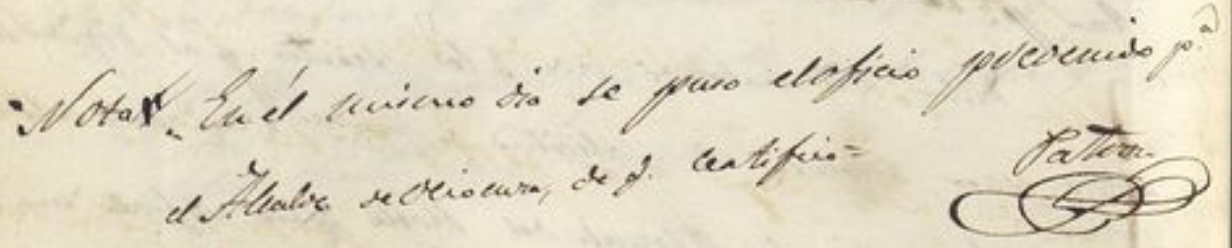 Nota,, En el mismo dia se puso el oficio prevenido p.ª
el Alcalde de , de q. certifico=